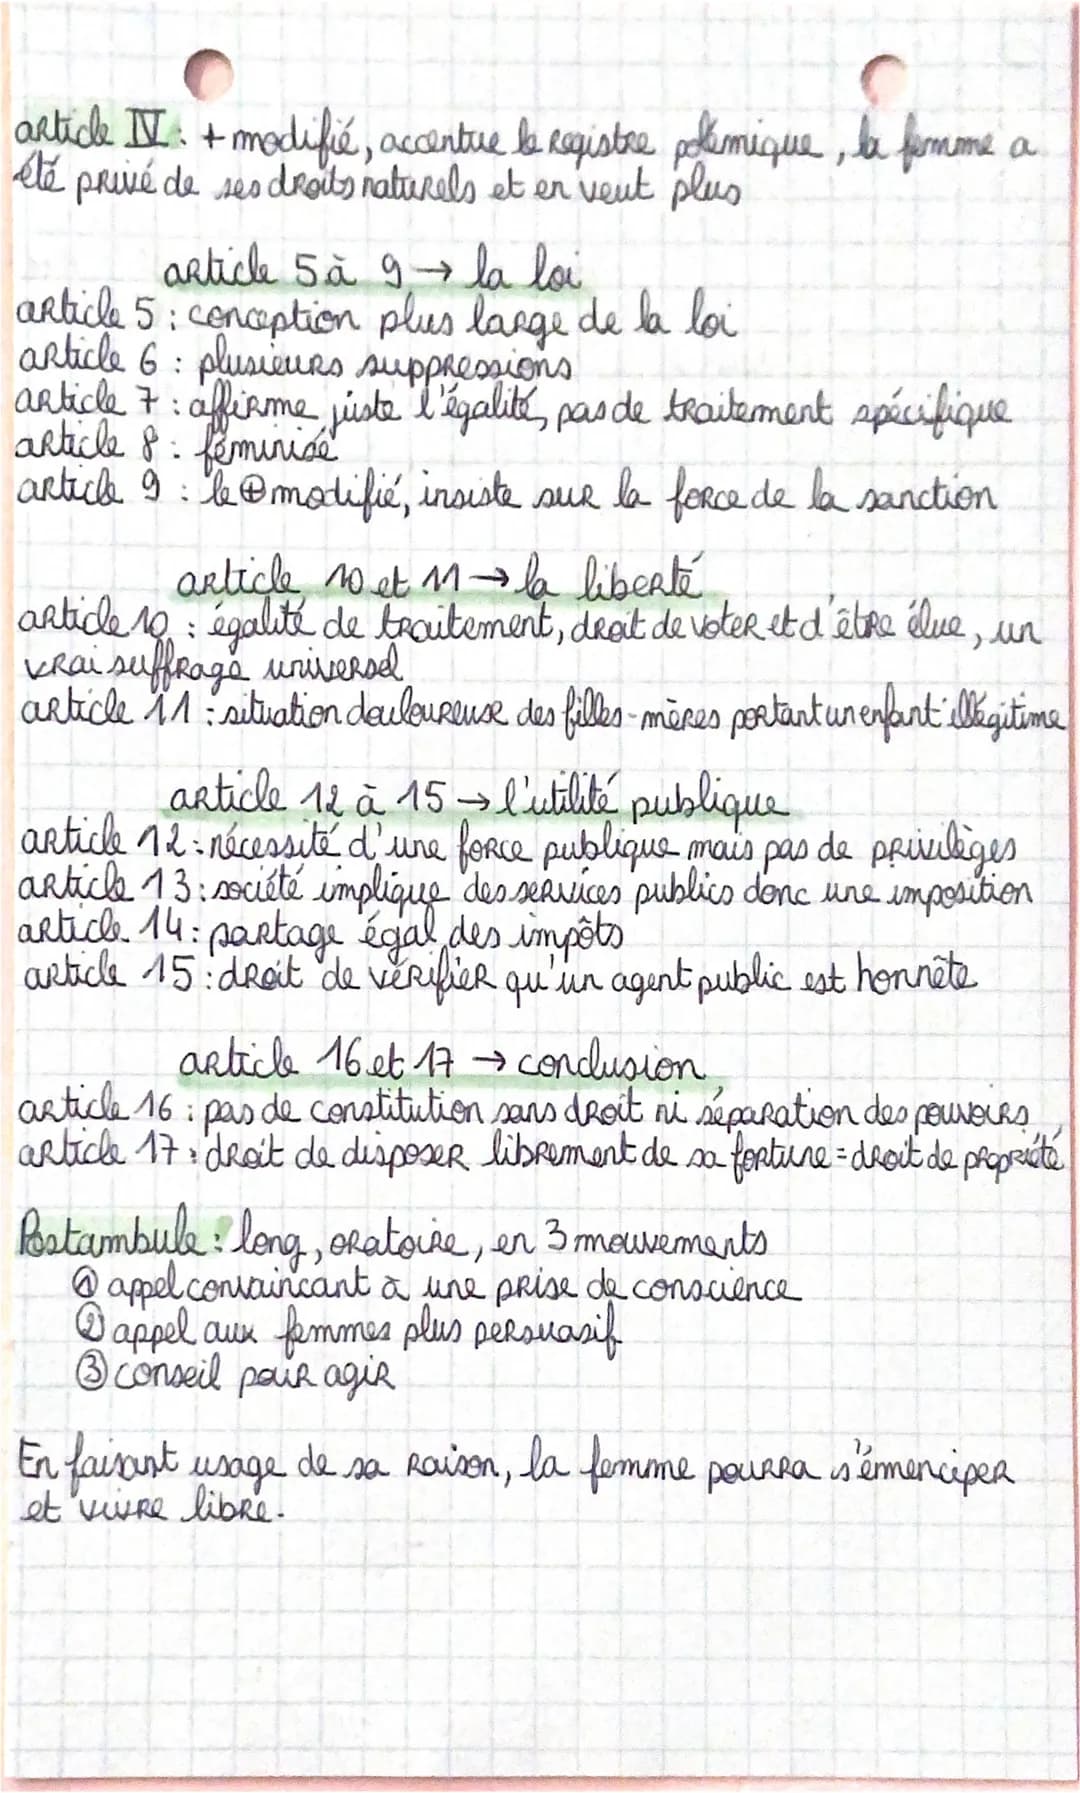 article IV : + modifié, accentue le registre polémique, la femme a
été privé de ses droits naturels et en veut plus
article 5 à 9 → la loi
article 5 : conception plus large de la loi
article 6 : plusieurs suppressions
article 7 : affirme juste l'égalité, pas de traitement spécifique
article 8 : féminisé
article 9 : le ⊕ modifié, insiste sur la force de la sanction
article 10 et 11 → la liberté
article 10 : égalité de traitement, droit de voter et d'être élue, un
vrai suffrage universel
article 11 : situation douloureuse des filles-mères portant un enfant illégitime
article 12 à 15 → l'utilité publique
article 12 : nécessité d'une force publique mais pas de privilèges
article 13 : société implique des services publics donc une imposition
article 14 : partage égal des impôts
article 15 : droit de vérifier qu'un agent public est honnête
article 16 et 17 → conclusion
article 16 : pas de constitution sans droit ni séparation des pouvoirs
article 17 : droit de disposer librement de sa fortune = droit de propriété
Postambule : long, oratoire, en 3 mouvements
① appel convaincant à une prise de conscience
② appel aux femmes plus persuasif
③ conseil pour agir
En faisant usage de sa raison, la femme pourra s'émenciper
et vivre libre.